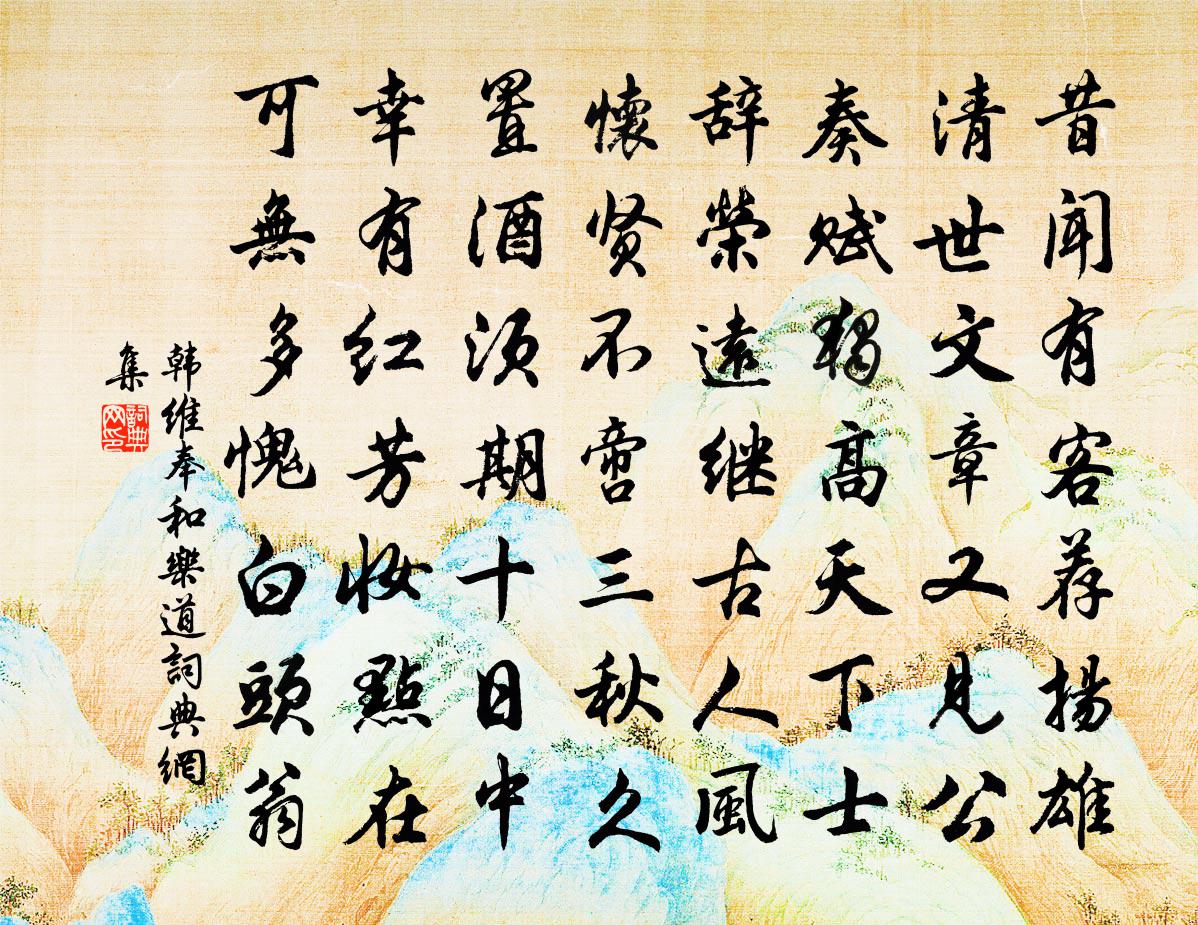 昔聞有客荐揚雄
清世文章又見公
奏赋獨高天下士
辞榮遠继古人風
懷贤不啻三秋久
置酒须期十日中
幸有红芳妆點在
可無多愧白頭翁
韩维奉和樂道詞典網
集
詞典
网印